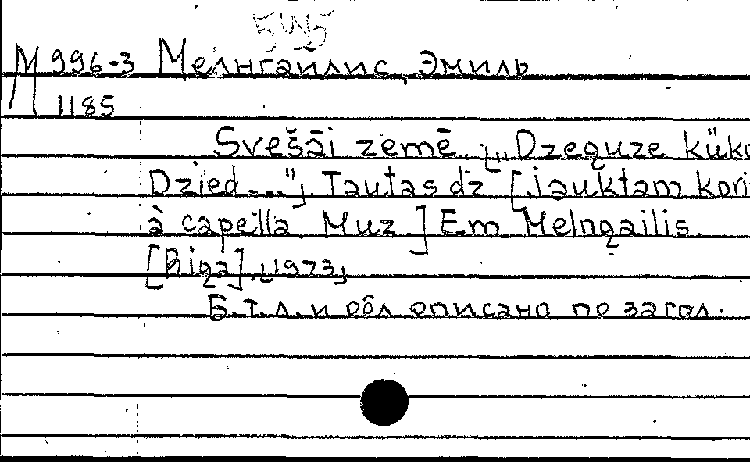 М 996-3 Мелнгайлис, Эмиль
1185
Svešāi zemē. „Dzeguze kūko
Dzied..." Tautas dz [Jauktam kori
à capella Muz.] Em Melngailis.
[Riga], 1973,
Б.т.л. и обл описано по загол.